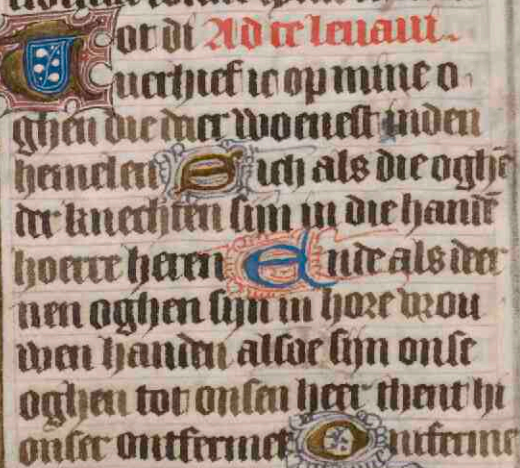 Tot di Ad te leuaui.
uerhief ic op mine o
ghen die daer woenest inden
hemelen Sich als die oghē
der knechten sijn in die handē
hoerre heren Ende als deer
nen oghen sijn in hore vrou
wen handen alsoe sijn onse
oghen tot onsen heer thent hi
onser ontfermet Ontferme